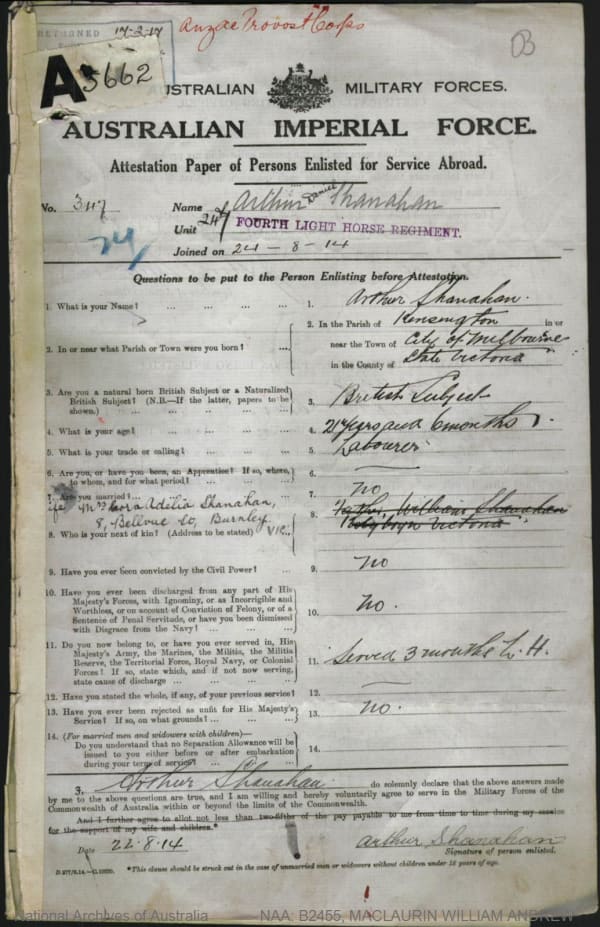 RETURNED
17-2-17
Anzac Provost Corps
A 3662
AUSTRALIAN MILITARY FORCES.
AUSTRALIAN IMPERIAL FORCE.
Attestation Paper of Persons Enlisted for Service Abroad.
No. 347 Name Arthur Daniel Shanahan
Unit FOURTH LIGHT HORSE REGIMENT.
Joined on 24-8-14
Questions to be put to the Person Enlisting before Attestation.
1. What is your Name? ... ... ... ... 1. Arthur Shanahan.
2. In or near what Parish or Town were you born? ... 2. In the Parish of Kensington in or
near the Town of City of Melbourne
in the County of State Victoria
3. Are you a natural born British Subject or a Naturalized
British Subject? (N.B.—If the latter, papers to be
shown.) 3. British Subject
4. What is your age? ... 4. 21 years and 6 months
5. What is your trade or calling? ... 5. Labourer
6. Are you, or have you been, an Apprentice? If so, where,
to whom, and for what period? ... 6. —
7. Are you married? ... 7. No
Wife Mrs Cora Adilia Shanahan,
8, Bellvue St, Burnley VIC.
8. Who is your next of kin? (Address to be stated) 8. Father William Shanahan
Victoria
9. Have you ever been convicted by the Civil Power? ... 9. No
10. Have you ever been discharged from any part of His
Majesty's Forces, with Ignominy, or as Incorrigible and
Worthless, or on account of Conviction of Felony, or of a
Sentence of Penal Servitude, or have you been dismissed
with Disgrace from the Navy? ... 10. No.
11. Do you now belong to, or have you ever served in, His
Majesty's Army, the Marines, the Militia, the Militia
Reserve, the Territorial Force, Royal Navy, or Colonial
Forces? If so, state which, and if not now serving,
state cause of discharge ... 11. Served 3 months L. H.
12. Have you stated the whole, if any, of your previous service? 12. —
13. Have you ever been rejected as unfit for His Majesty's
Service? If so, on what grounds? ... 13. No.
14. (For married men and widowers with children)—
Do you understand that no Separation Allowance will be
issued to you either before or after embarkation
during your term of service? 14.
Arthur Shanahan do solemnly declare that the above answers made
by me to the above questions are true, and I am willing and hereby voluntarily agree to serve in the Military Forces of the
Commonwealth of Australia within or beyond the limits of the Commonwealth.
And I further agree to allot not less than two-fifths of the pay payable to me from time to time during my service
for the support of my wife and children.*
Date 22.8.14 Arthur Shanahan
Signature of person enlisted.
*This clause should be struck out in the case of unmarried men or widowers without children under 18 years of age.
National Archives of Australia NAA: B2455, MACLAURIN WILLIAM ANDREW